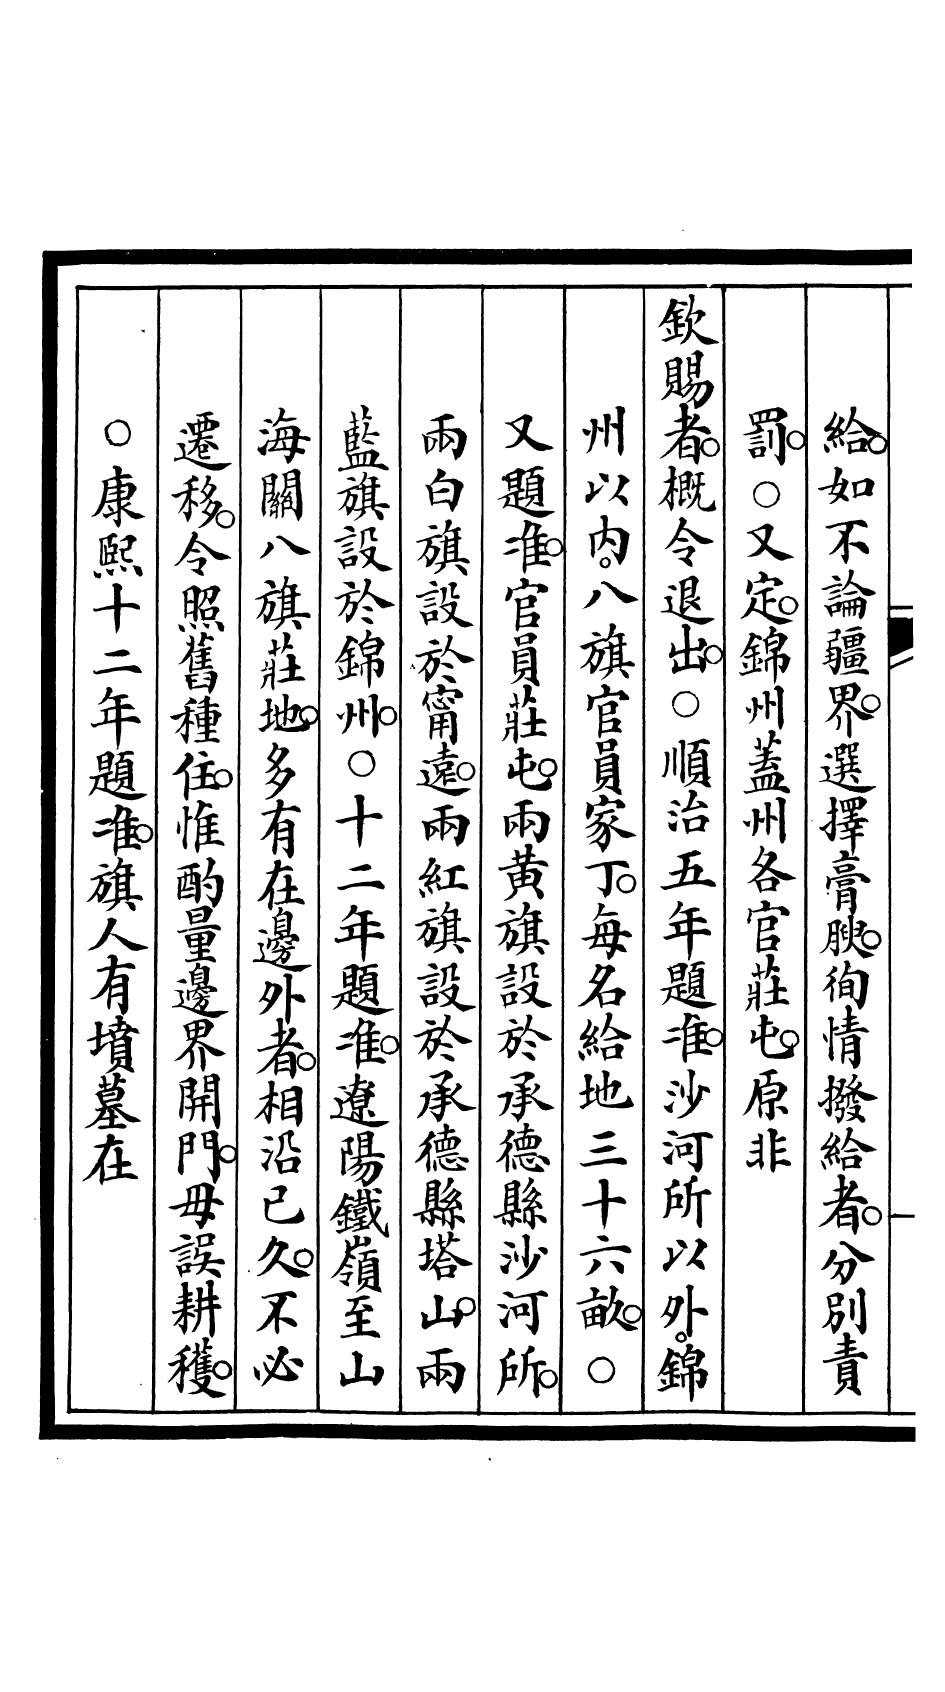 給。如不論疆界。選擇膏腴。徇情撥給者。分別責
罰。○又定。錦州蓋州各官莊屯。原非
欽賜者。概令退出。○順治五年題准。沙河所以外。錦
州以內。八旗官員家丁。每名給地三十六畝。○
又題准。官員莊屯。兩黃旗設於承德縣沙河所。
兩白旗設於甯遠。兩紅旗設於承德縣塔山。兩
藍旗設於錦州。○十二年題准。遼陽鐵嶺至山
海關八旗莊地。多有在邊外者。相沿已久。不必
遷移。令照舊種住。惟酌量邊界開門。毋誤耕穫。
○康熙十二年題准。旗人有墳墓在